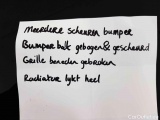 Meerdere scheuren bumper
Bumper balk gebogen & gescheurd
Grille beneden gebroken
Radiateur lykt heel